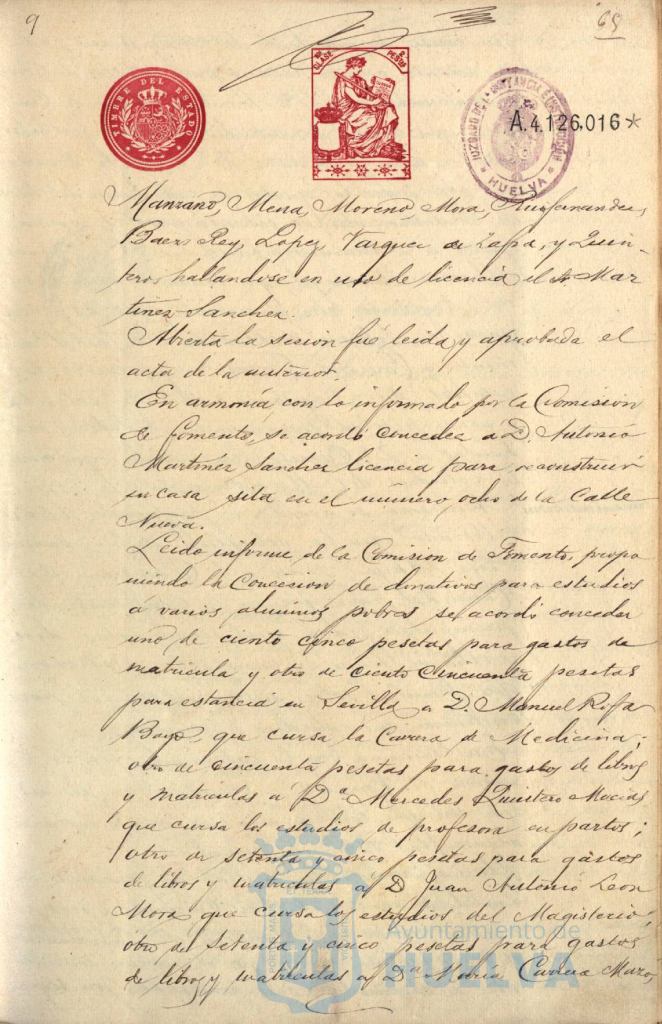 9
65
TIMBRE DEL ESTADO
9ª CLASE
2 PESETAS
JUZGADO DE 1ª INSTANCIA E INSTRUCCION
HUELVA
A.4.126.016*
Manzano, Mena, Moreno, Mora, Ruifernandez,
Baez Rey, Lopez, Vazquez de Zapa, y Quin-
tero, hallandose en uso de licencia el Sr Mar
tinez Sanchez.
Abierta la sesion fué leida y aprobada el
acta de la anterior.
En armonía, con lo informado por la Comission
de Fomento, se acordó conceder á D. Antonio
Martinez Sanchez licencia para reconstruir
su casa sita en el número ocho de la Calle
Nueva.
Leido informe de la Comision de Fomento, propo
niendo la Concesion de donativos para estudios
á varios alumnos pobres se acordó conceder
uno de ciento cinco pesetas para gastos de
matricula y otro de ciento cincuenta pesetas
para estancia en Sevilla á D. Manuel Rofa
Bayo, que cursa la Carrera de Medicina;
otro de cincuenta pesetas para gastos de libros
y matriculas á Dª Mercedes Quintero Macias
que cursa los estudios de profesora en partos;
otro de setenta y cinco pesetas para gastos
de libros y matriculas á D Juan Antonio Leon
Mora que cursa los estudios del Magisterio,
otro de setenta y cinco pesetas para gastos
de libros y matriculas á Dª Maria Carrera Mazo,
Ayuntamiento de
HUELVA